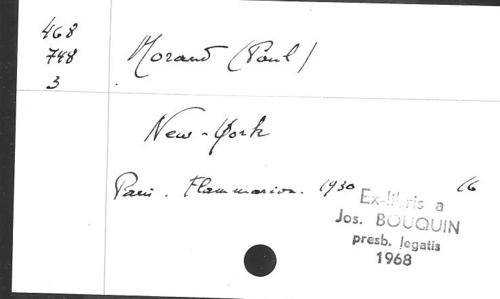 468
748
3
Morand (Paul)
New-York
Paris. Flammarion. 1930 16
Ex-libris a
Jos. BOUQUIN
presb. legatis
1968